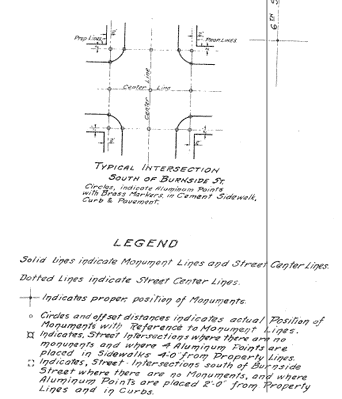 6TH S
Prop Lines
Prop Lines
Center Line
Center Line
TYPICAL INTERSECTION
SOUTH OF BURNSIDE ST.
Circles, indicate Aluminum Points
with Brass Markers in Cement Sidewalk,
Curb & Pavement.
LEGEND
Solid lines indicate Monument Lines and Street Center Lines.
Dotted Lines indicate Street Center Lines.
Indicates proper position of Monuments.
Circles and offset distances indicates actual Position of
Monuments with Reference to Monument Lines.
Indicates, Street Intersections where there are no
monuments and where 4 Aluminum Points are
placed in Sidewalks 4'0" from Property Lines.
Indicates, Street Intersections south of Burnside
Street where there are no Monuments, and where
Aluminum Points are placed 2'-0" from Property
Lines and in Curbs.